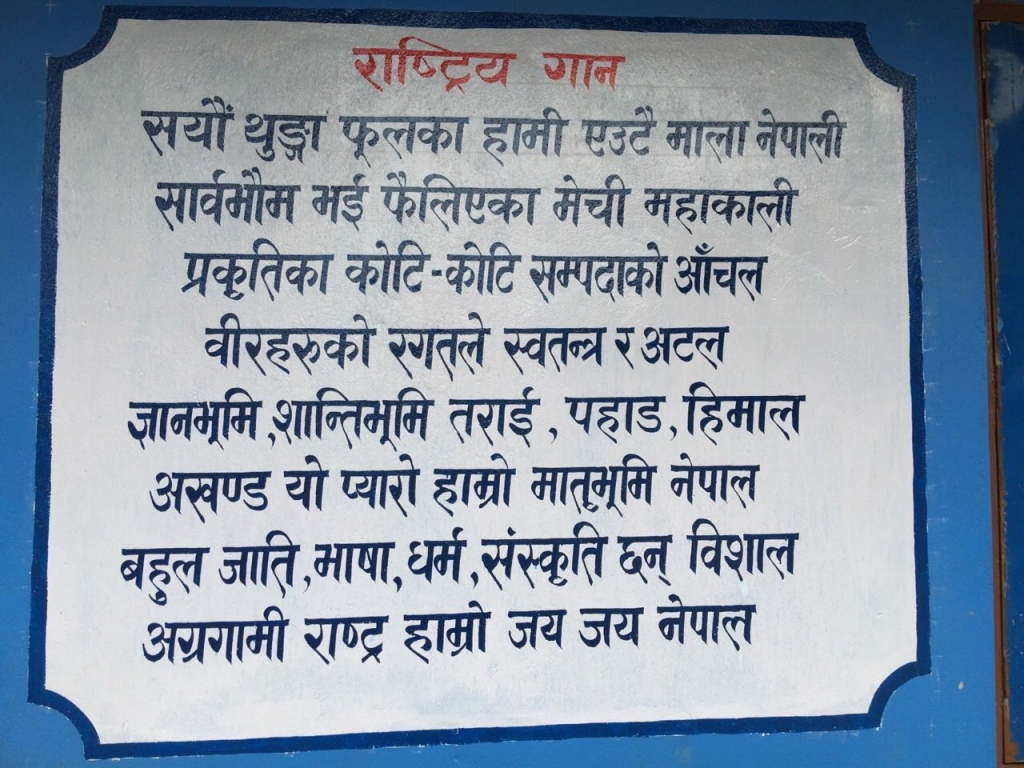 राष्ट्रिय गान
सयौं थुङ्गा फूलका हामी एउटै माला नेपाली
सार्वभौम भई फैलिएका मेची महाकाली
प्रकृतिका कोटि-कोटि सम्पदाको आँचल
वीरहरुको रगतले स्वतन्त्र र अटल
ज्ञानभूमि,शान्तिभूमि तराई, पहाड,हिमाल
अखण्ड यो प्यारो हाम्रो मातृभूमि नेपाल
बहुल जाति,भाषा,धर्म,संस्कृति छन् विशाल
अग्रगामी राष्ट्र हाम्रो जय जय नेपाल